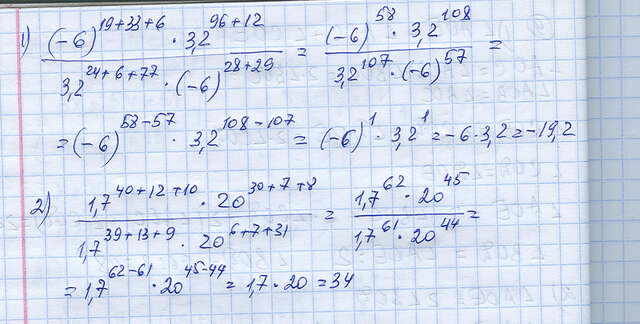 1) \frac{(-6)^{19+33+6} \cdot 3,2^{96+12}}{3,2^{24+6+77} \cdot (-6)^{28+29}} = \frac{(-6)^{58} \cdot 3,2^{108}}{3,2^{107} \cdot (-6)^{57}} =
= (-6)^{58-57} \cdot 3,2^{108-107} = (-6)^1 \cdot 3,2^1 = -6 \cdot 3,2 = -19,2
2) \frac{1,7^{40+12+10} \cdot 20^{30+7+8}}{1,7^{39+13+9} \cdot 20^{6+7+31}} = \frac{1,7^{62} \cdot 20^{45}}{1,7^{61} \cdot 20^{44}} =
= 1,7^{62-61} \cdot 20^{45-44} = 1,7 \cdot 20 = 34